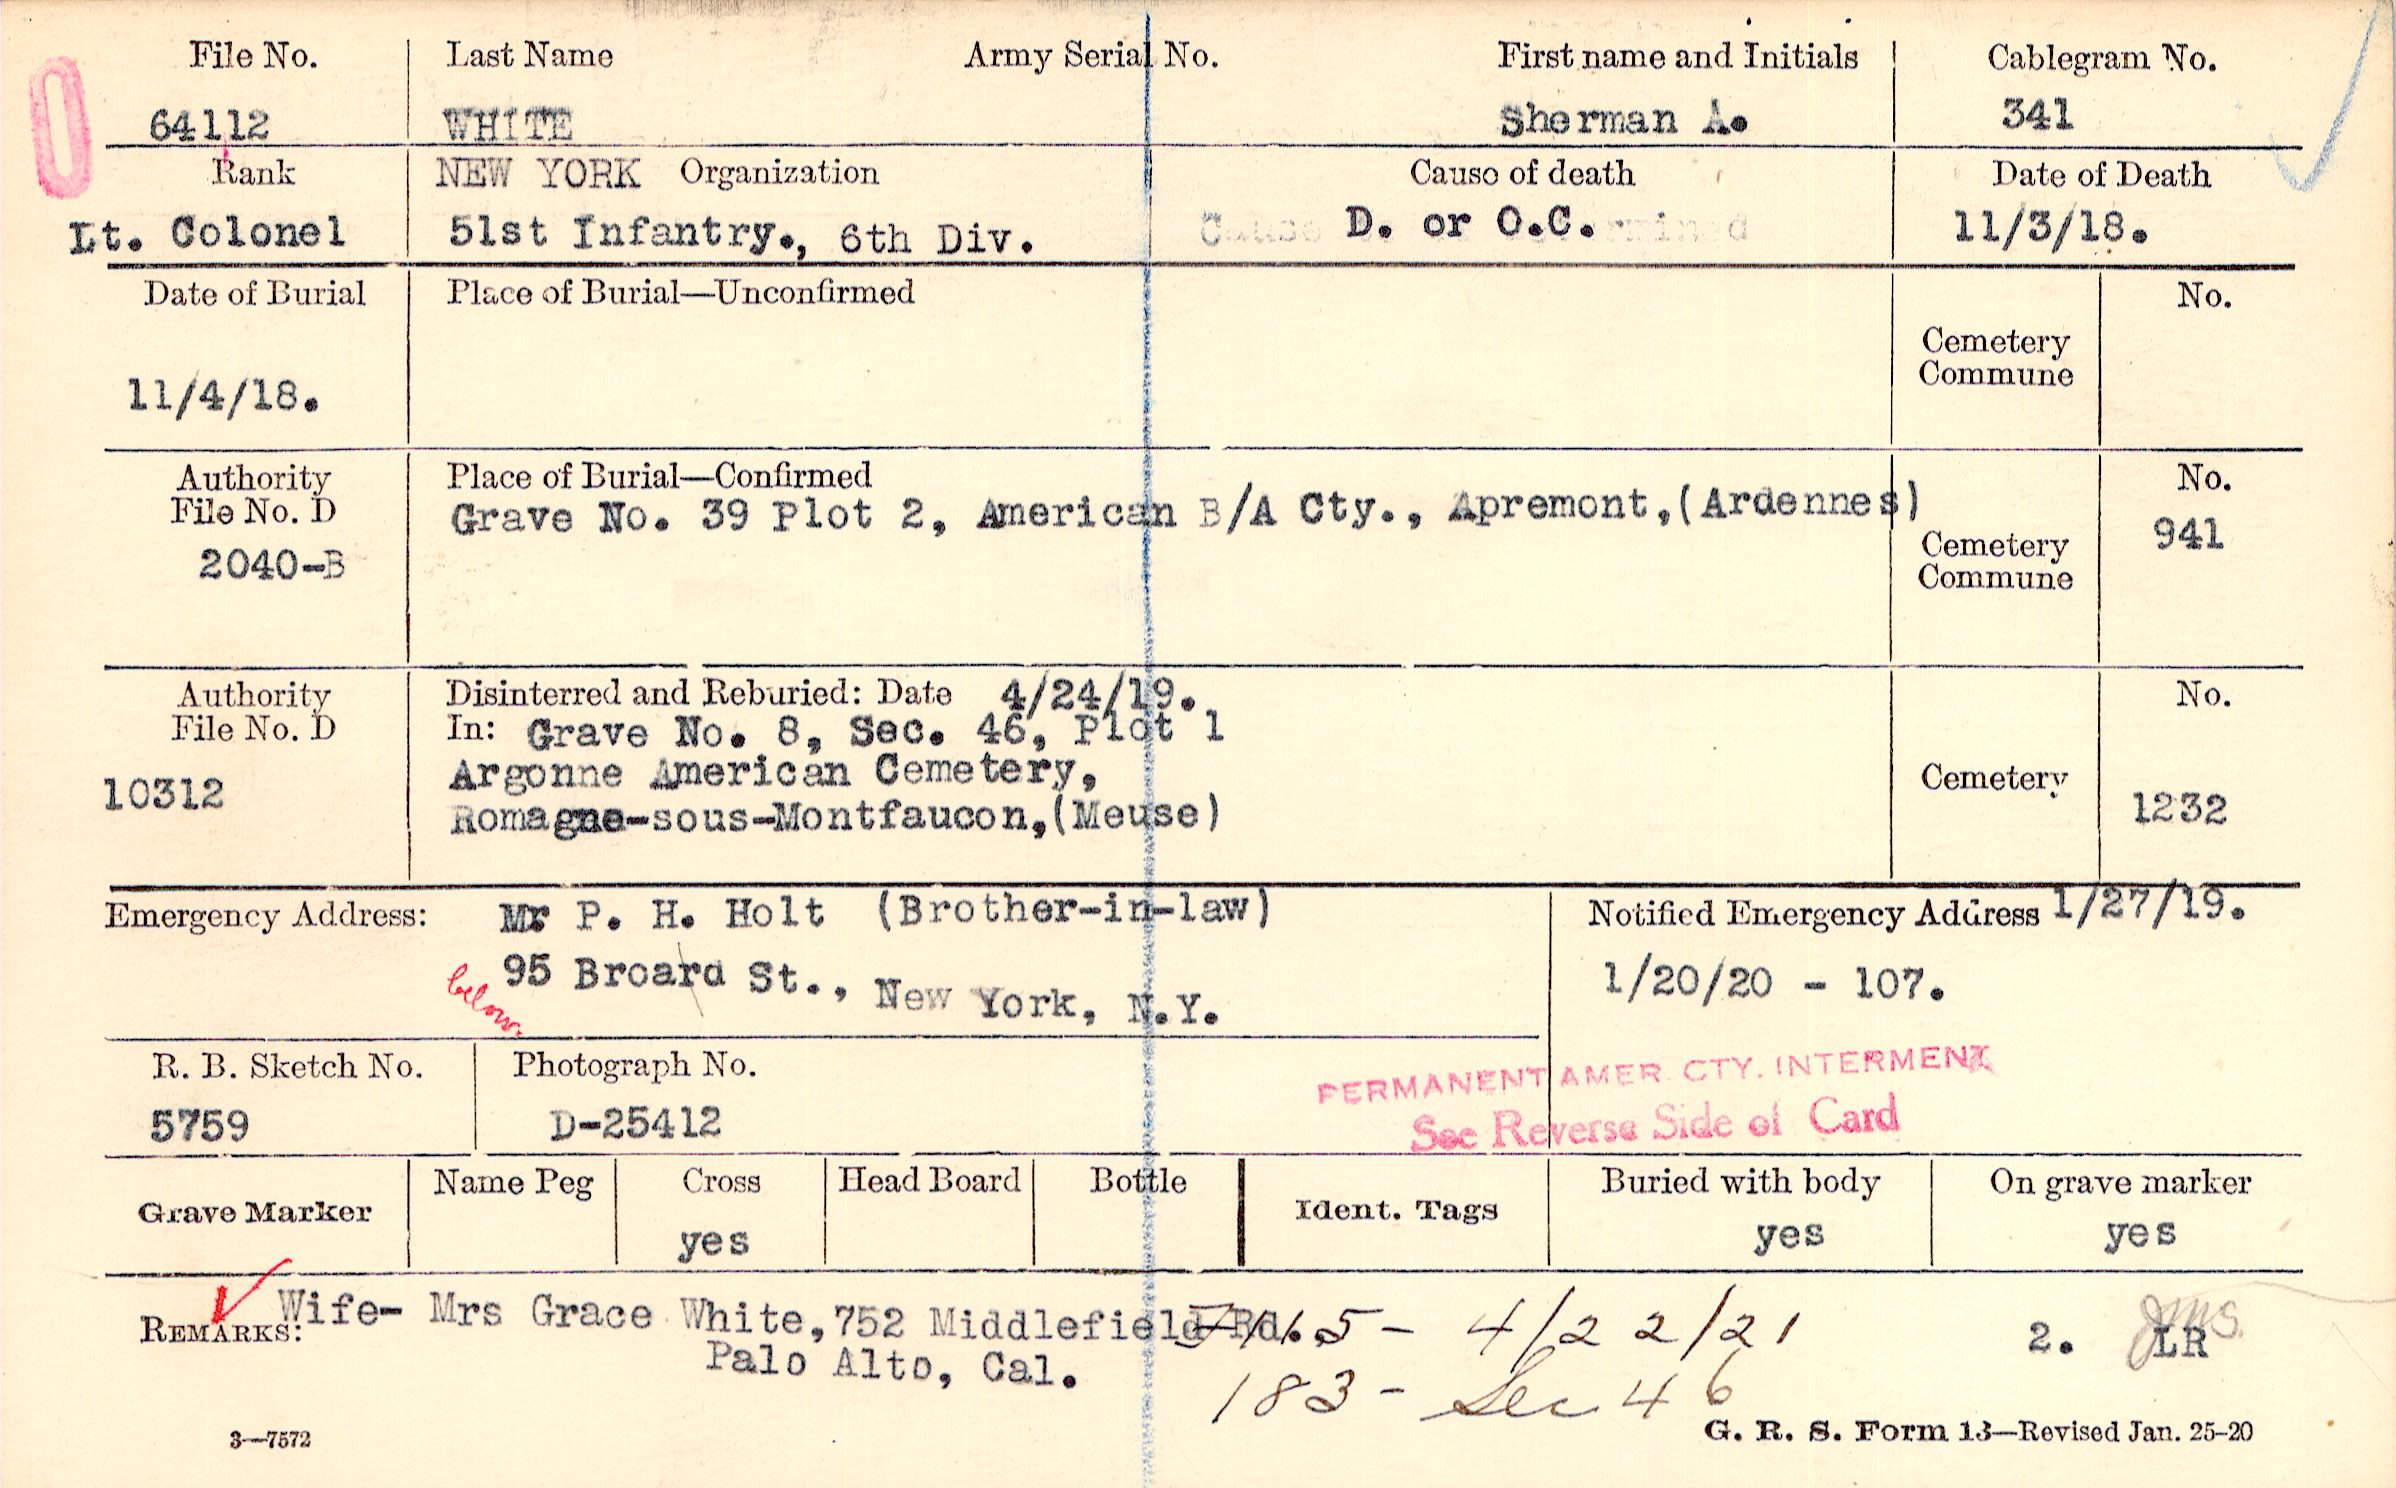 File No. Last Name Army Serial No. First name and Initials Cablegram No.
64112 WHITE Sherman A. 341
Rank NEW YORK Organization Cause of death Date of Death
Lt. Colonel 51st Infantry., 6th Div. D. or O.C. 11/3/18.
Date of Burial Place of Burial—Unconfirmed No.
Cemetery
Commune
11/4/18.
Authority Place of Burial—Confirmed No.
File No. D Grave No. 39 Plot 2, American B/A Cty., Apremont,(Ardennes)
2040-B Cemetery 941
Commune
Authority Disinterred and Reburied: Date 4/24/19. No.
File No. D In: Grave No. 8, Sec. 46, Plot 1
Argonne American Cemetery, Cemetery
10312 Romagne-sous-Montfaucon,(Meuse) 1232
Emergency Address: Mr P. H. Holt (Brother-in-law) Notified Emergency Address 1/27/19.
below. 95 Broard St., New York, N.Y. 1/20/20 - 107.
R. B. Sketch No. Photograph No. PERMANENT AMER. CTY. INTERMENT
5759 D-25412 See Reverse Side of Card
Grave Marker Name Peg Cross Head Board Bottle Ident. Tags Buried with body On grave marker
yes yes yes
REMARKS: Wife- Mrs Grace White, 752 Middlefield Rd. 5 - 4/22/21 2. LR
Palo Alto, Cal. 183 - Sec 46
3—7572 G. R. S. Form 13—Revised Jan. 25-20